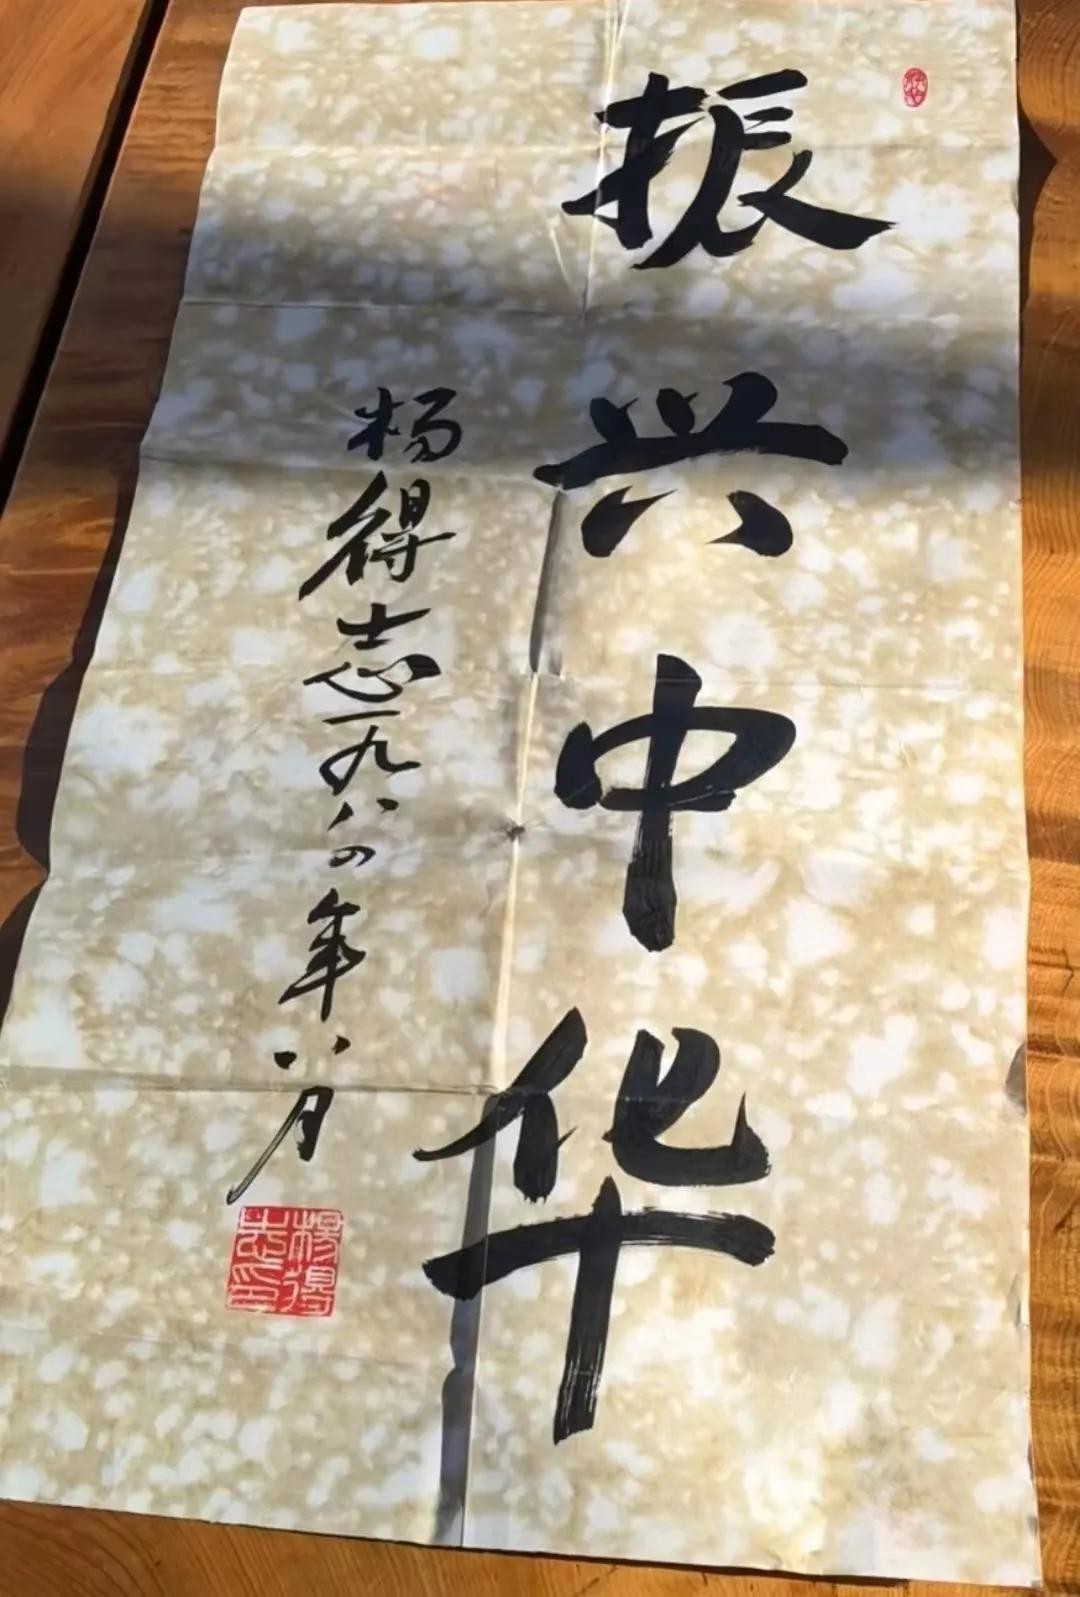 振兴中华
杨得志一九八四年八月
楊得志印